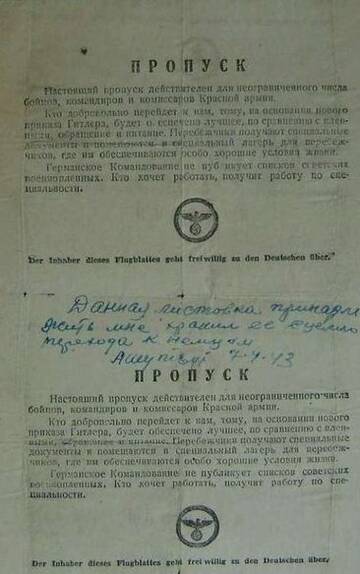 ПРОПУСК
Настоящий пропуск действителен для неограниченного числа
бойцов, командиров и комиссаров Красной армии.
Кто добровольно перейдет к нам, тому, на основании нового
приказа Гитлера, будет обеспечено лучшее, по сравнению с плен-
ными, обращение и питание. Перебежчики получают специальные
документы и помещаются в специальный лагерь для перебеж-
чиков, где им обеспечиваются особо хорошие условия жизни.
Германское Командование не публикует списков советских
военнопленных. Кто хочет работать, получит работу по спе-
циальности.
Der Inhaber dieses Flugblattes geht freiwillig zu den Deutschen über.
Данная листовка принадле
жить мне хранил ее с целью
перехода к немцам
7-4-43
ПРОПУСК
Настоящий пропуск действителен для неограниченного числа
бойцов, командиров и комиссаров Красной армии.
Кто добровольно перейдет к нам, тому, на основании нового
приказа Гитлера, будет обеспечено лучшее, по сравнению с плен-
ными, обращение и питание. Перебежчики получают специальные
документы и помещаются в специальный лагерь для перебеж-
чиков, где им обеспечиваются особо хорошие условия жизни.
Германское Командование не публикует списков советских
военнопленных. Кто хочет работать, получит работу по спе-
циальности.
Der Inhaber dieses Flugblattes geht freiwillig zu den Deutschen über.